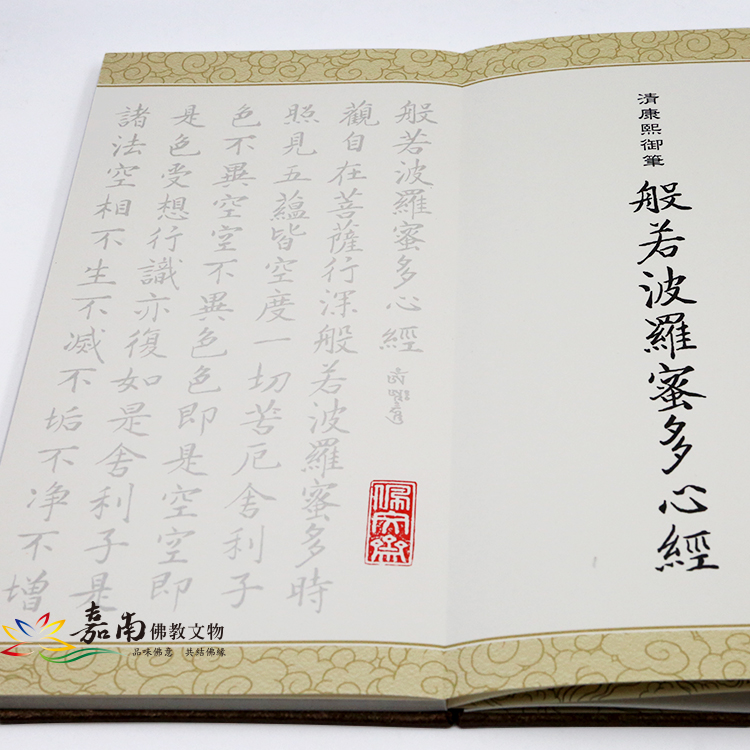 清康熙御筆
般若波羅蜜多心經
般若波羅蜜多心經
觀自在菩薩行深般若波羅蜜多時
照見五蘊皆空度一切苦厄舍利子
色不異空空不異色色即是空空即
是色受想行識亦復如是舍利子是
諸法空相不生不滅不垢不净不增
佩文齋
嘉南佛教文物
品味佛意 共結佛緣